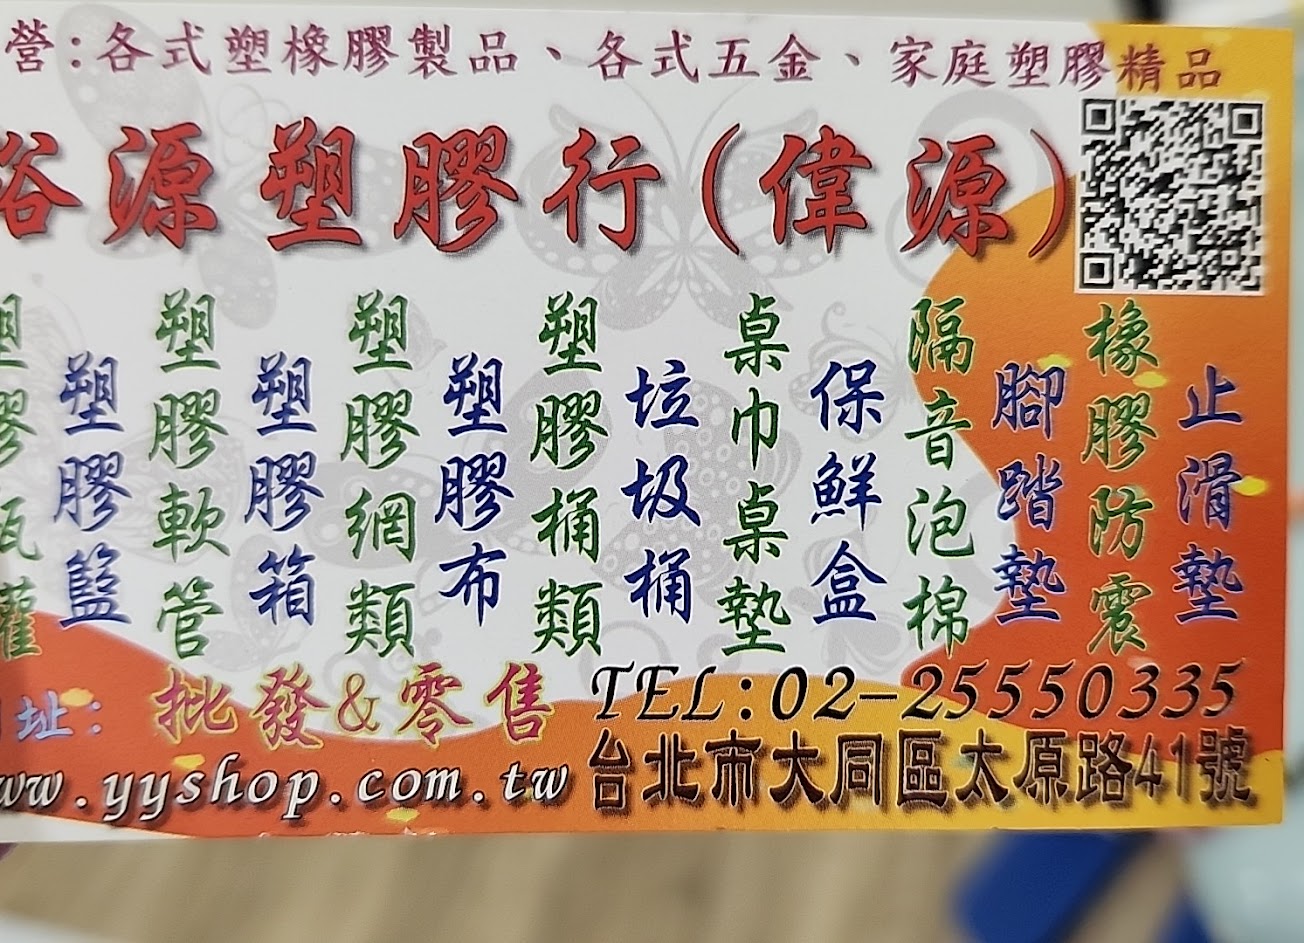 營:各式塑橡膠製品、各式五金、家庭塑膠精品
裕源塑膠行(偉源)
塑膠瓶罐
塑膠籃
塑膠軟管
塑膠箱
塑膠網類
塑膠布
塑膠桶類
垃圾桶
桌巾桌墊
保鮮盒
隔音泡棉
腳踏墊
橡膠防震
止滑墊
網址:
批發&零售
TEL:02-25550335
www.yyshop.com.tw
台北市大同區太原路41號